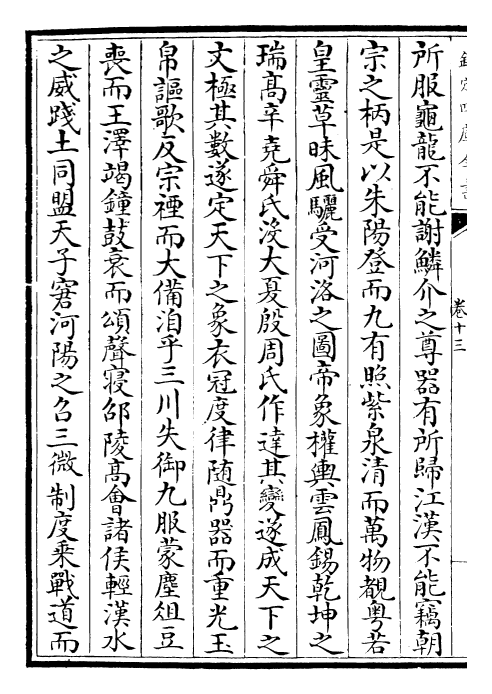 欽定四庫全書
卷十三
所服龜龍不能謝鱗介之尊器有所歸江漢不能竊朝
宗之柄是以朱陽登而九有照紫泉清而萬物覩粤若
皇靈草昧風驪受河洛之圖帝象權輿雲鳳錫乾坤之
瑞髙辛堯舜氏没大夏殷周氏作達其變遂成天下之
文極其數遂定天下之象衣冠度律随鼎器而重光玉
帛謳歌反宗禋而大備洎乎三川失御九服蒙塵俎豆
喪而王澤竭鐘鼓衰而頌聲寝邵陵髙會諸侯輕漢水
之威踐土同盟天子窘河陽之召三微制度乘戰道而